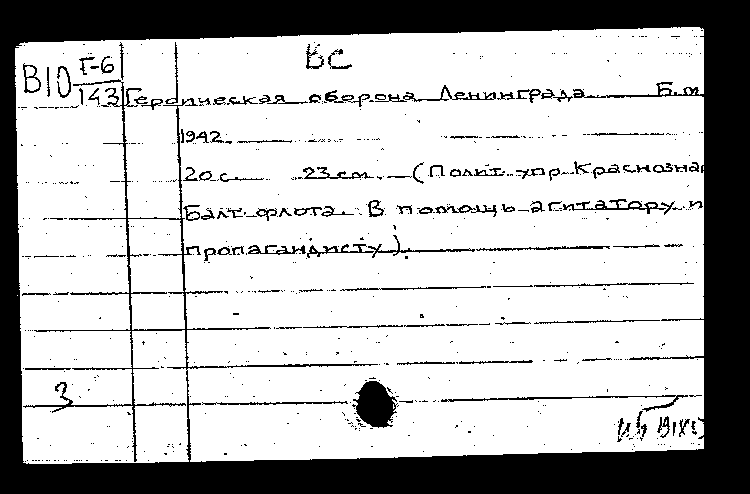 ВС
В10 Г-6
143 Героическая оборона Ленинграда. Б.м.
1942.
20 с. 23 см. (Полит. упр. Краснозна
Балт. флота. В помощь агитатору и
пропагандисту).
3